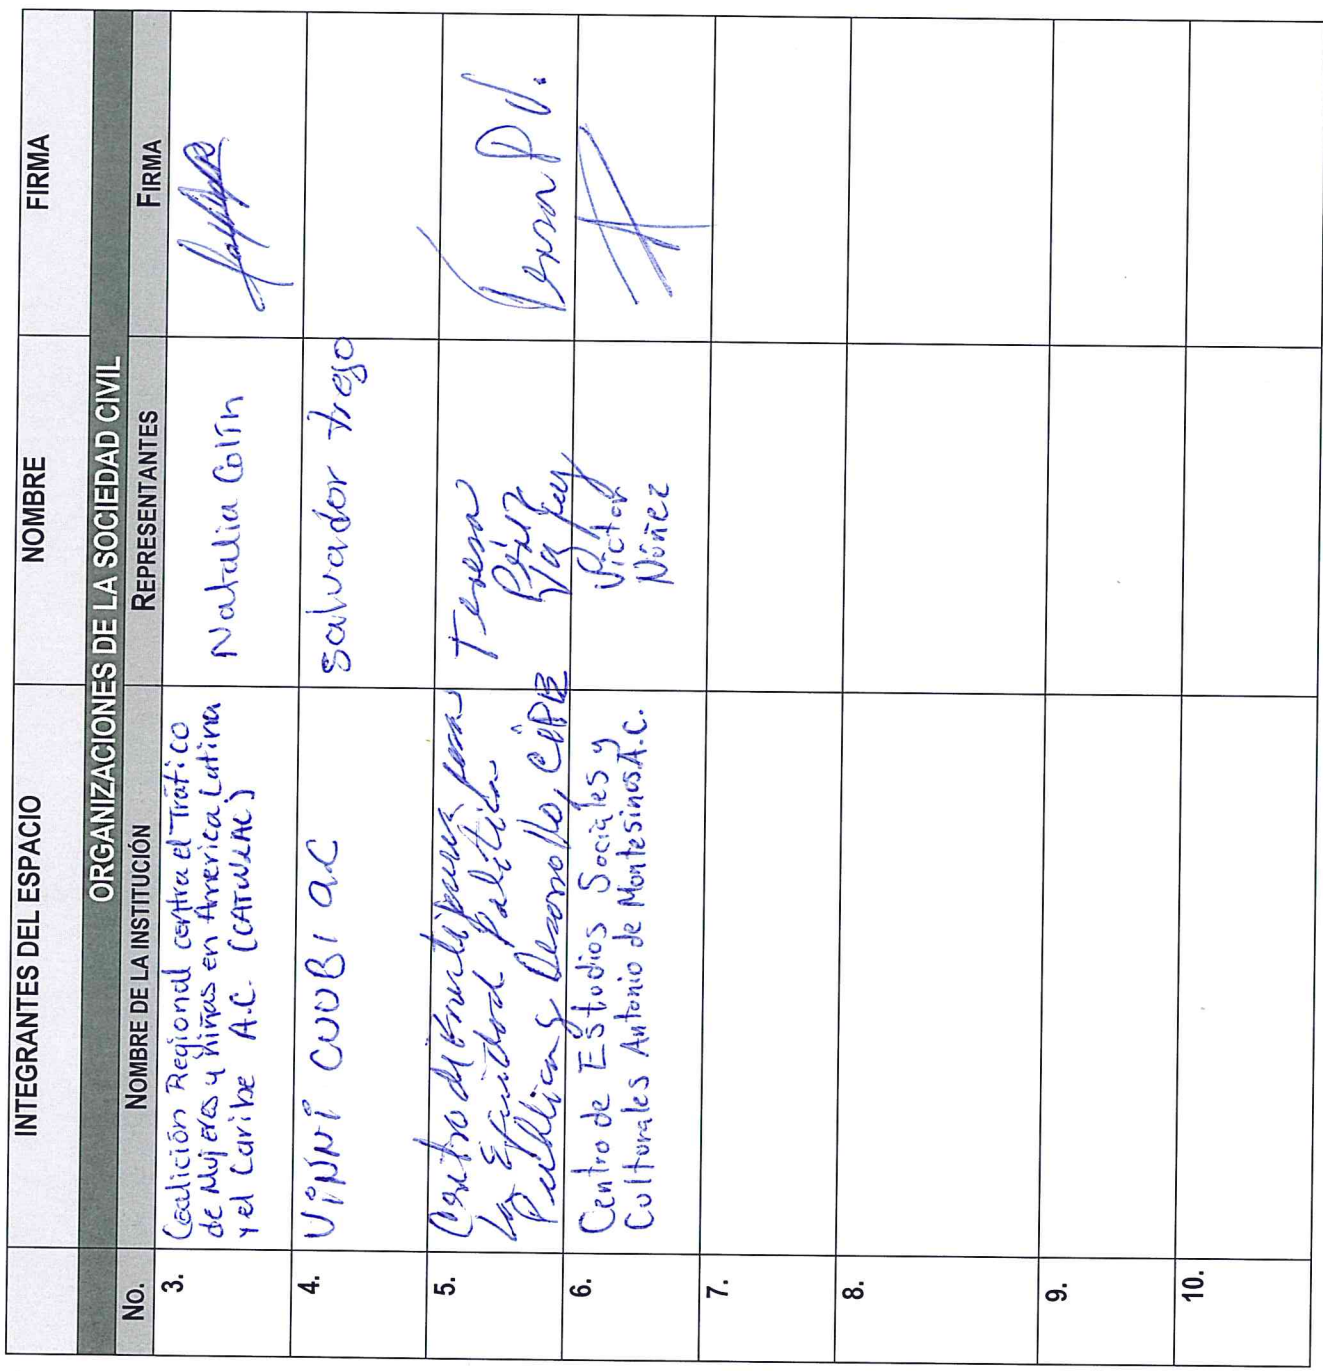 INTEGRANTES DEL ESPACIO NOMBRE FIRMA
ORGANIZACIONES DE LA SOCIEDAD CIVIL
No. NOMBRE DE LA INSTITUCIÓN REPRESENTANTES FIRMA
3.
Coalición Regional contra el Tráfico
de Mujeres y niñas en America Latina
y el Caribe A.C.
Natalia Colín
4.
VINNI CUUBI ac
salvador trejo
5.
Centro de para
la Equidad Politica
Publica y Desarrollo,
Teresa
Pérez
Teresa P V.
6.
Centro de Estudios Sociales y
Culturales Antonio de Montesinos A.C.
Victor
Núñez
7.
8.
9.
10.